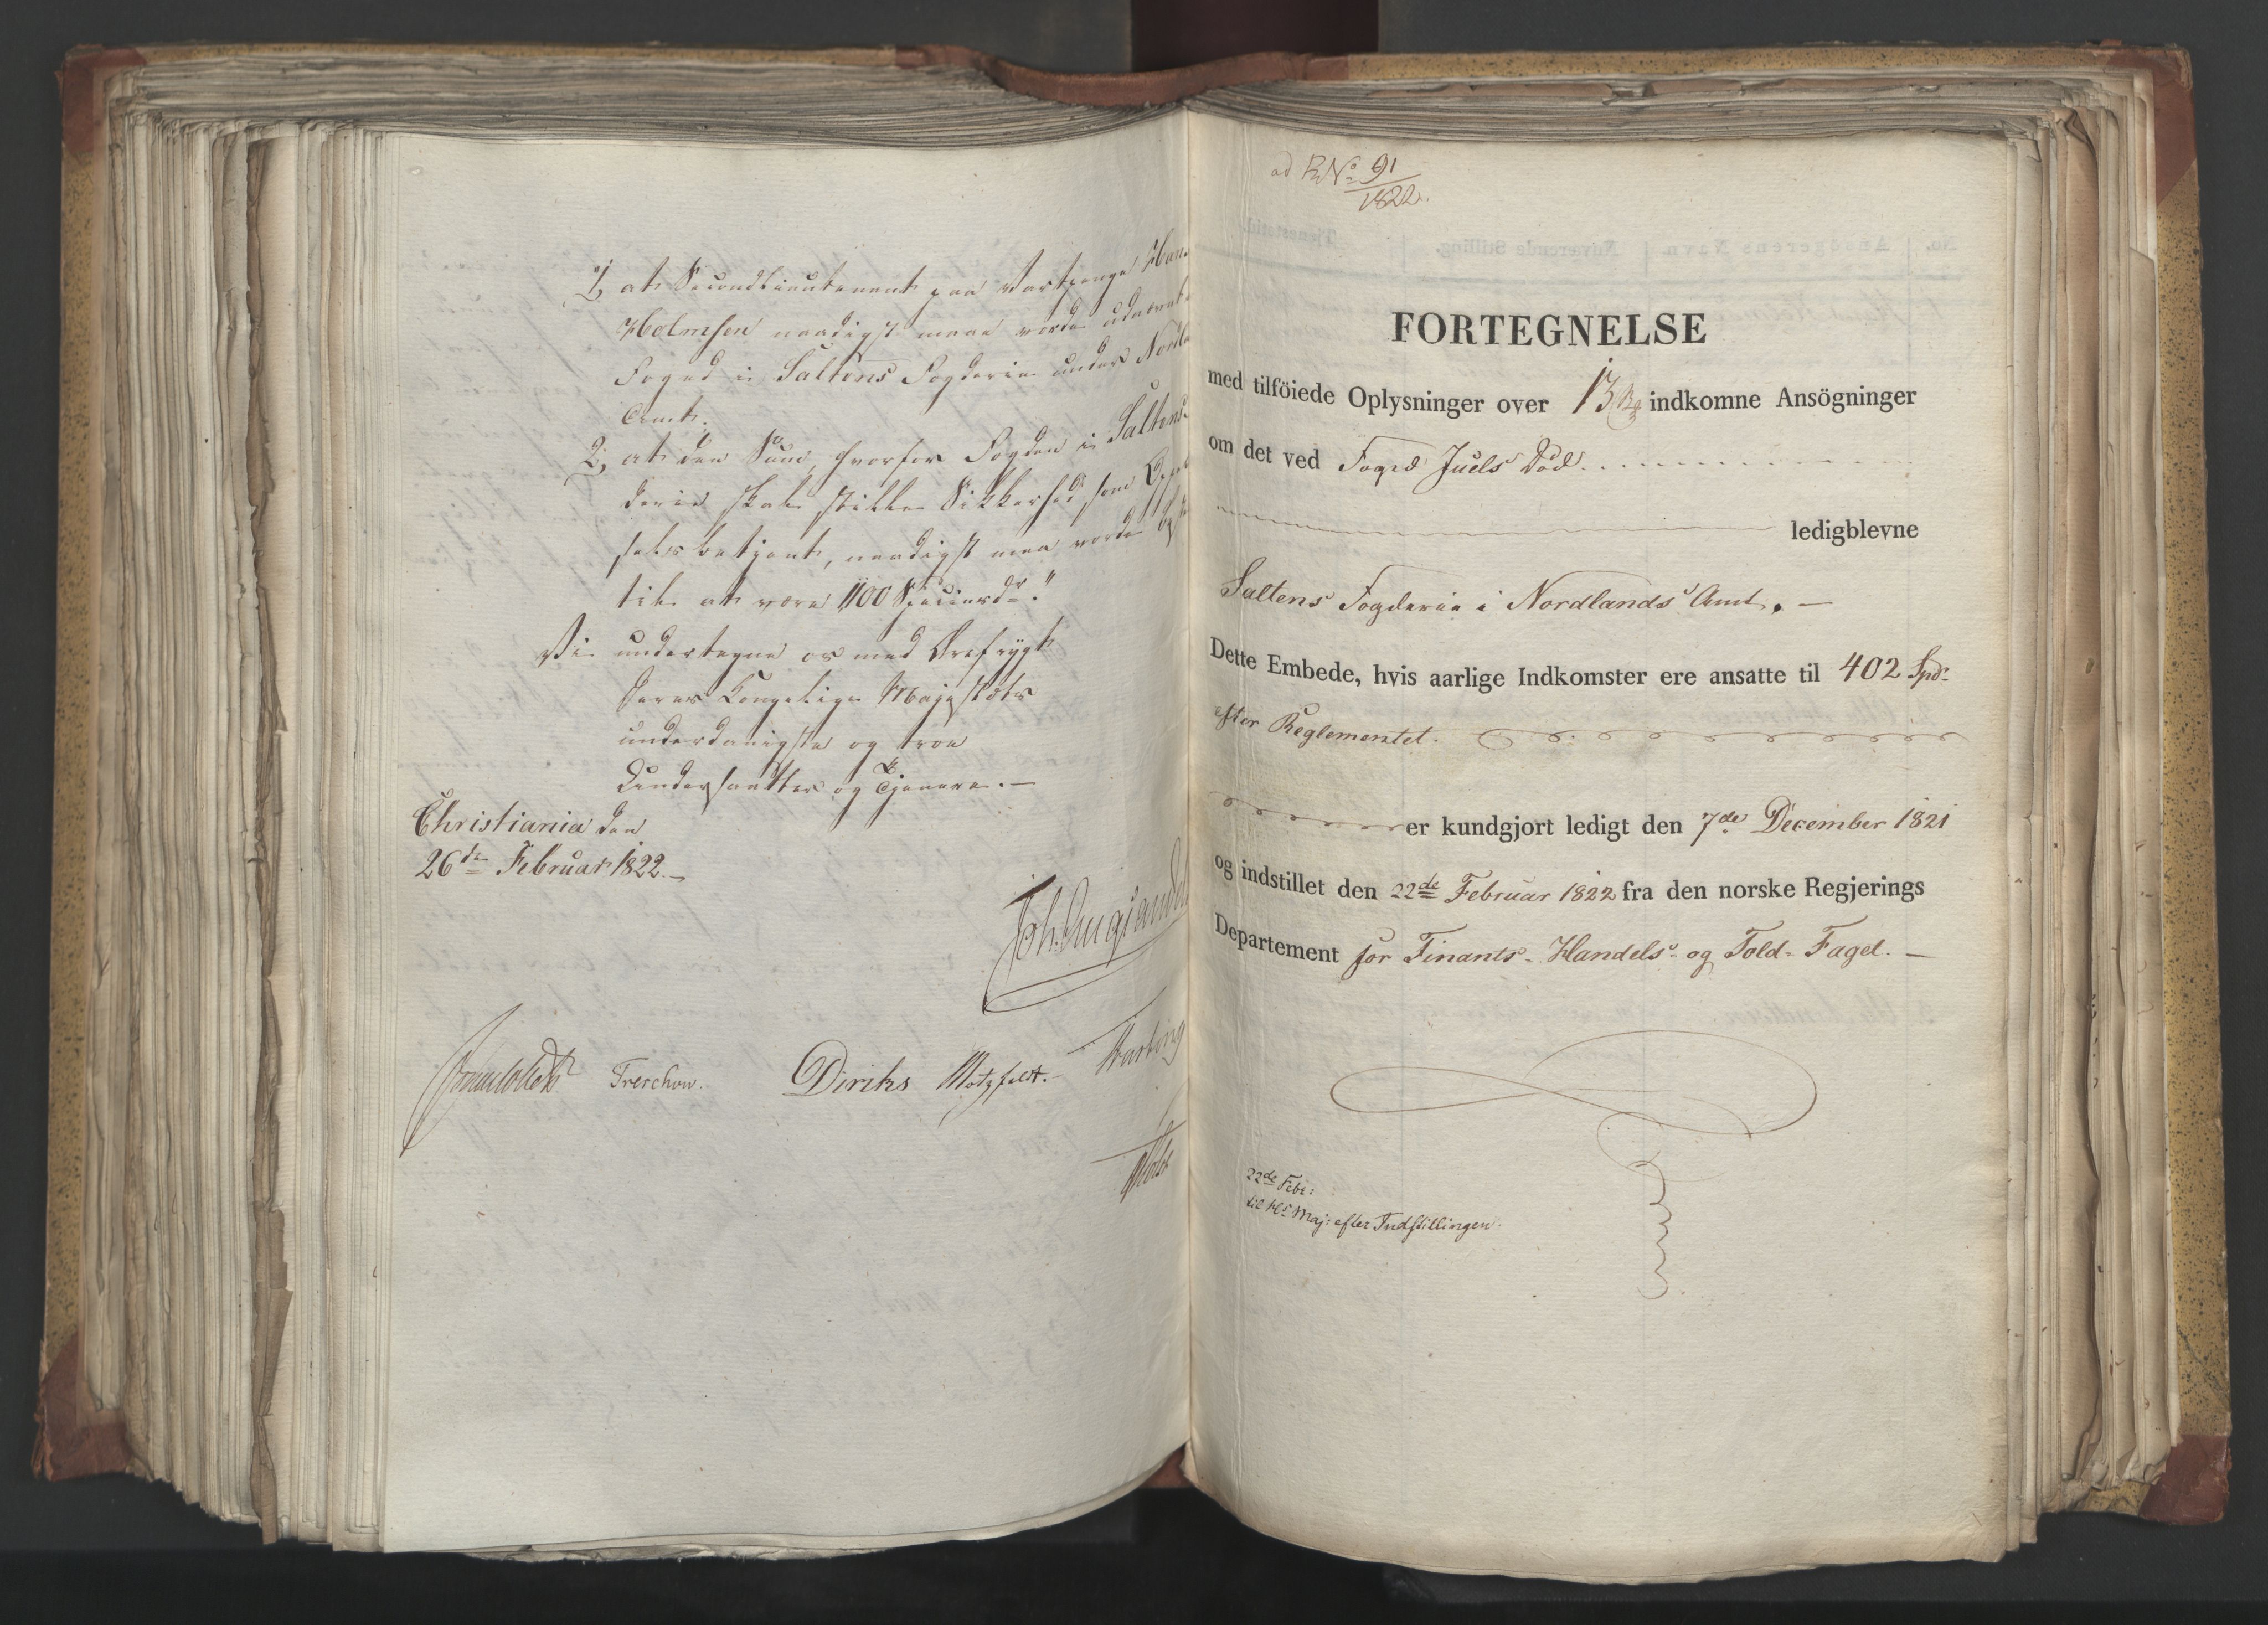 1, at Secondlieutenant paa Vartpenge Hans
Holmsen naadigst maae vorde udnævnt
Foged i Saltens Fogderie under Nordla
Amt.
2, at den Sum, hvorfor Fogden i Saltens
derie skal stille Sikkerhed som Opp
selsbetjent, naadigst maa vorde
til at være 1100 Speciesdr."
Vi undertegne os med Ærefrygt
Deres Kongelige Majestæts
underdanigste og troe
Undersaatter og Tjenere. —
Christiania den
26de Februar 1822. —
Treschow.
Diriks
Motzfeldt.
ad No 91
1822.
FORTEGNELSE
med tilföiede Oplysninger over 13 indkomne Ansögninger
om det ved Foged Juels Död
ledigblevne
Saltens Fogderie i Nordlands Amt. —
Dette Embede, hvis aarlige Indkomster ere ansatte til 402 Spd.
efter Reglementet.
er kundgjort ledigt den 7de December 1821
og indstillet den 22de Februar 1822 fra den norske Regjerings
Departement for Finants- Handels- og Told-Faget. —
22de Febr:
til Hs Maj: efter Indstillingen.